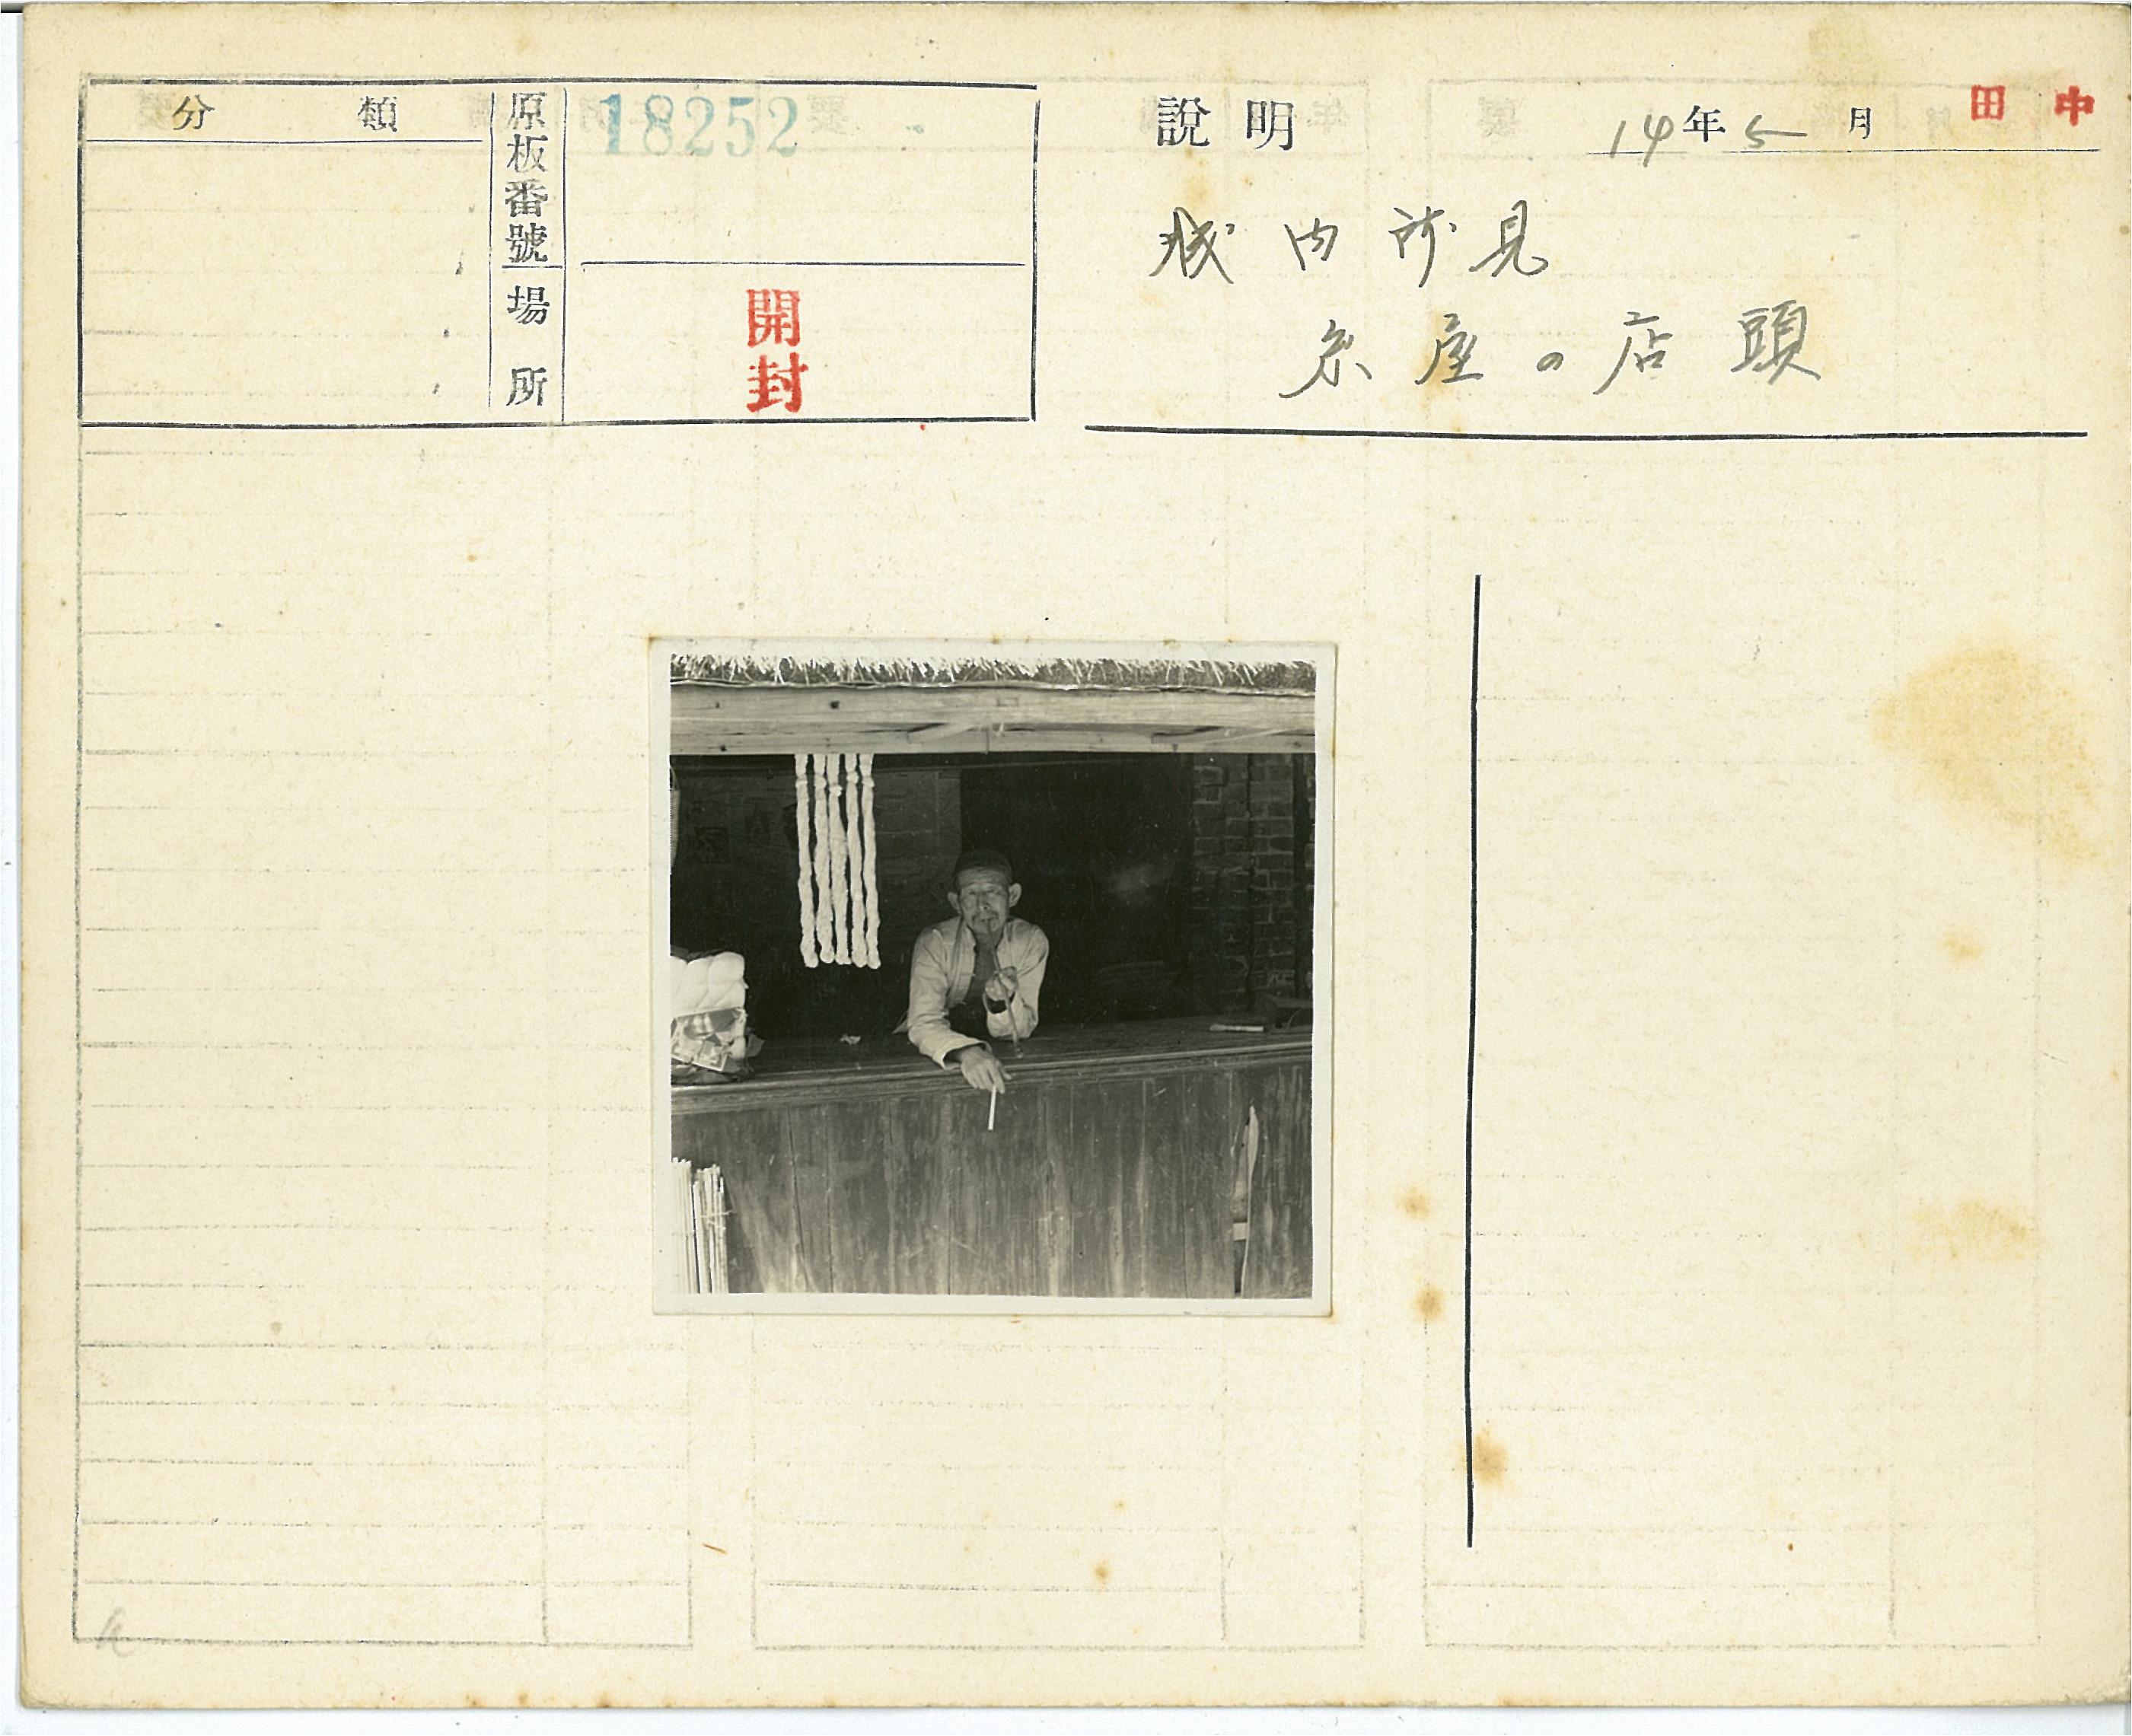 分類
原板番號
18252
場所
開封
說明
14年5月
田中
城内所見
糸屋の店頭